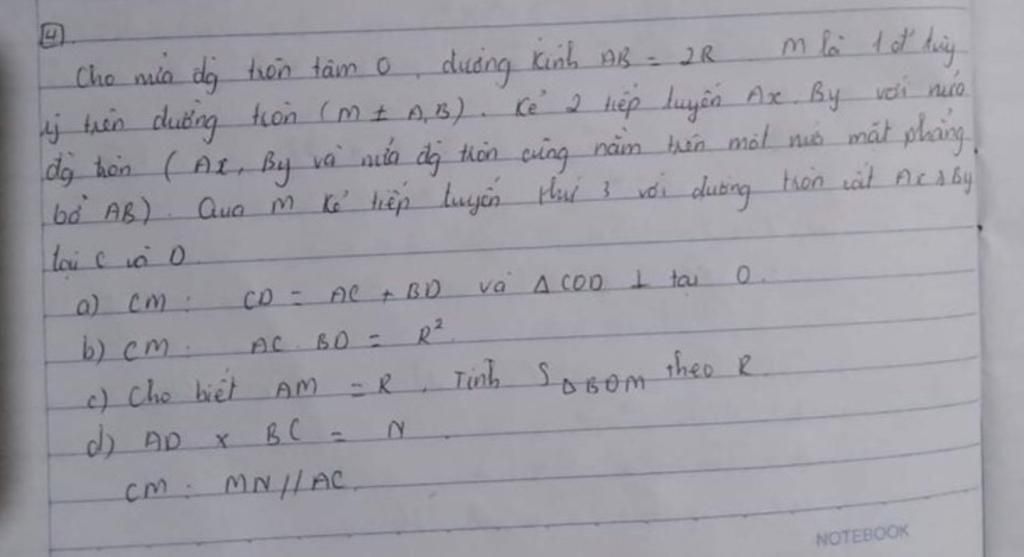 4
Cho nửa đg tròn tâm O, đường kính AB = 2R M là 1 đ' tùy
ý trên đường tròn (M ± A,B). Kẻ 2 tiếp tuyến Ax. By với nửa
đg tròn (Ax, By và nửa đg tròn cùng nằm trên một nửa mặt phẳng
bờ AB). Qua M kẻ tiếp tuyến thứ 3 với đường tròn cắt Ax &By
tại C và D
a) CM: CD = AC + BD và Δ COD ⊥ tại O.
b) CM: AC BD = R²
c) Cho biết AM = R, Tính S ΔBDM theo R
d) AD x BC = N
CM: MN//AC
NOTEBOOK